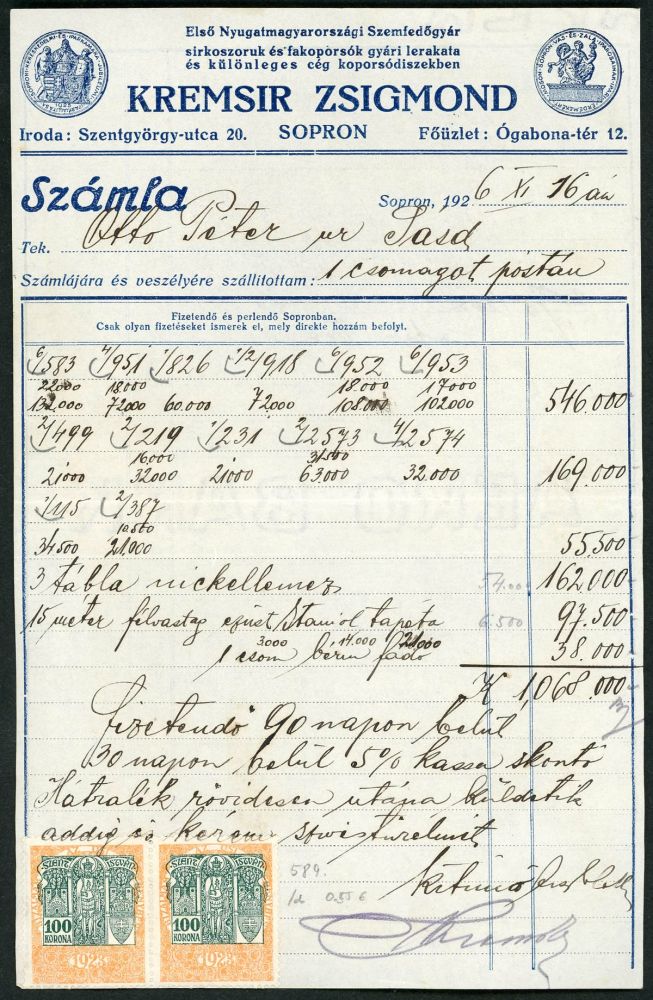 Első Nyugatmagyarországi Szemfedőgyár
sirkoszoruk és fakoporsók gyári lerakata
és különleges cég koporsódiszekben
KREMSIR ZSIGMOND
Iroda: Szentgyörgy-utca 20. SOPRON Főüzlet: Ógabona-tér 12.
Számla
Sopron, 1926 XI 16 án
Tek. Otto Péter ur Sásd
Számlájára és veszélyére szállitottam: 1 csomagot postán
Fizetendő és perlendő Sopronban.
Csak olyan fizetéseket ismerek el, mely direkte hozzám befolyt.
6/583 4/951 1/826 1/2/918 6/952 6/953
22000 18.000 18.000 17000
132.000 72000 60.000 72.000 108.000 102.000 546.000
2/499 2/219 1/231 2/2573 4/2574
16.000 31.500
21000 32.000 21000 63.000 32.000 169.000
1/115 2/387
10.500
34500 21.000 55.500
3 tábla nickellemez 54.000 162.000
15 meter félvastag ezüst Staniol tapéta 6.500 97.500
3.000 14.000 21.000
1 csom 38.000
K 1,068.000
fizetendő 90 napon belül
30 napon belül 5% kassa skontó
Hátralék rövidesen utána küldetik
addig is kérem
Kitünő
589.
0.55 €
SZENT ISTVÁN
100
KORONA
1923
SZENT ISTVÁN
100
KORONA
1923